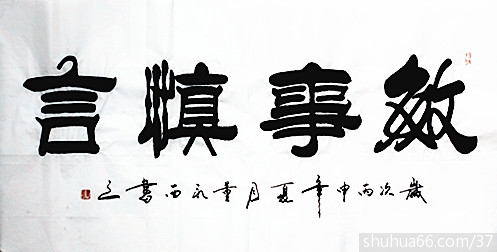 敏事慎言
歲次丙申年夏月董永西書之
shuhua66.com/37